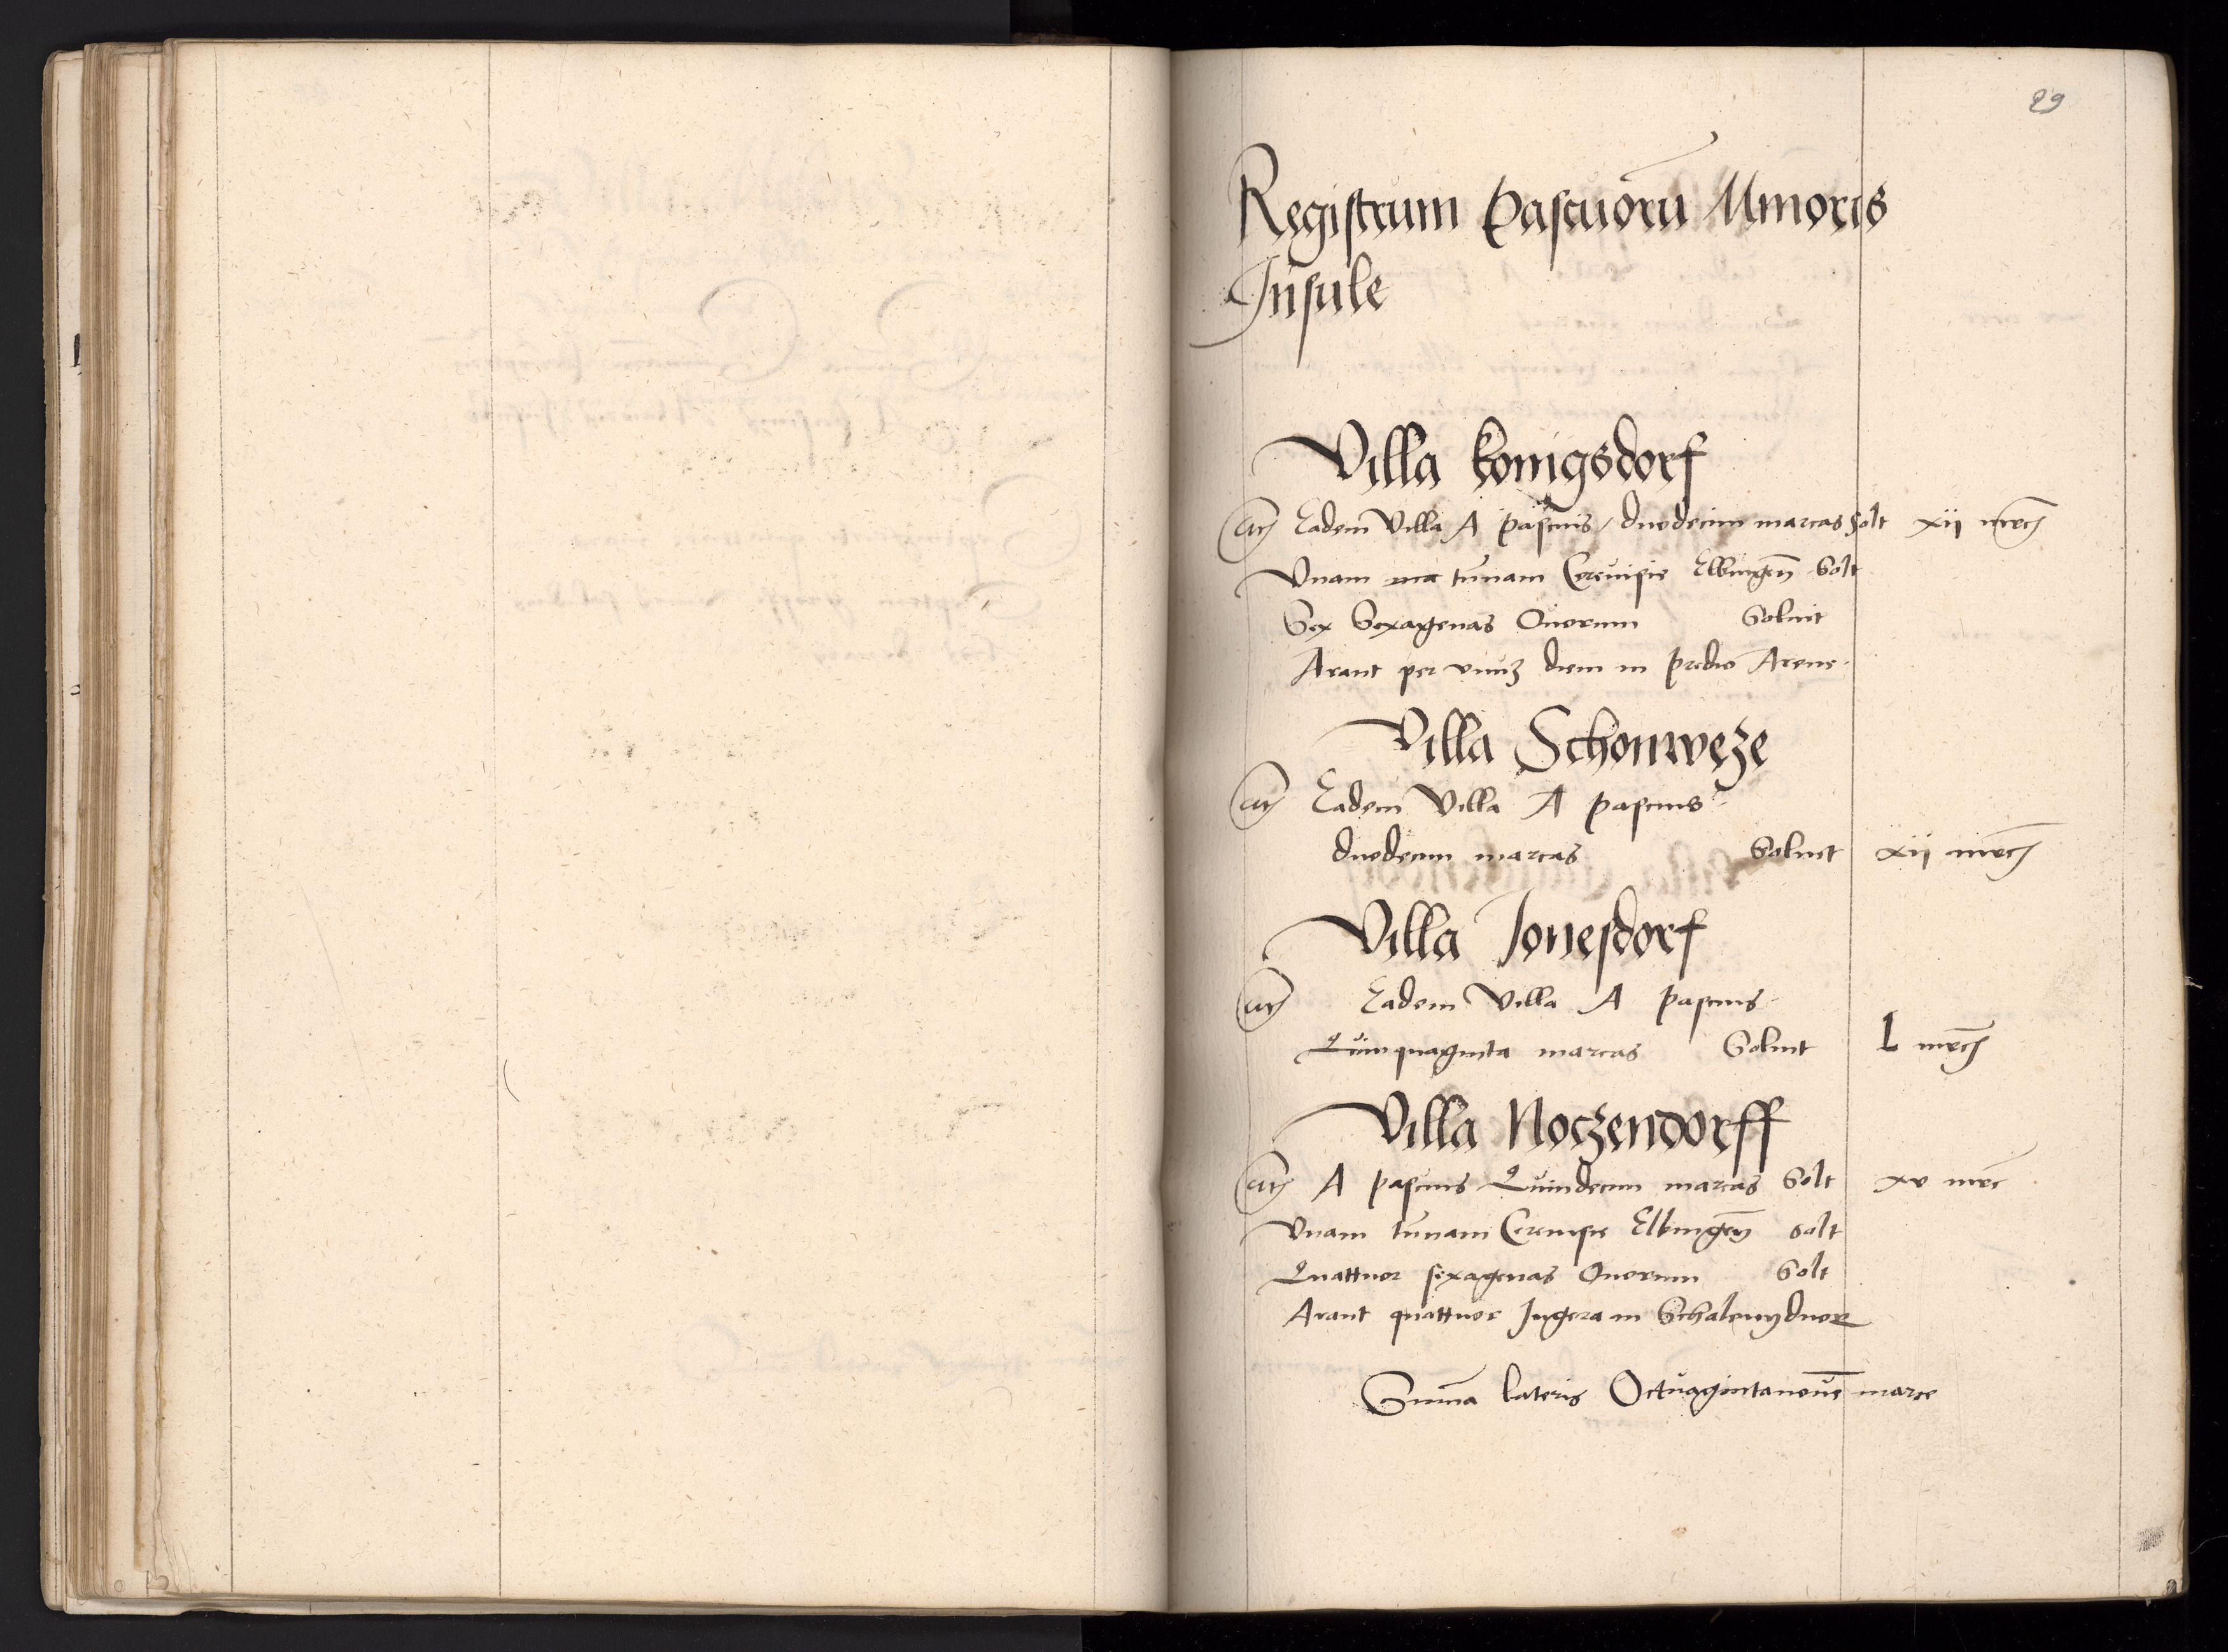 29
Registrum Pascuorū Minoris
Insule
Villa konigsdorf
Eadem Villa A pascuis / duodecim marcas Solt xii mrc
Vnam ma tunnam Cereuisie Elbingen̄ Solt
Sex Sexagenas Ouorum Soluit
Arant per vnuʒ diem in predio Arene
Villa Schonweze
Eadem Villa A pascuis
duodecim marcas Soluit xii mrc
Villa Jonesdorf
Eadem Villa A pascuis
Quinquaginta marcas Soluit L mrc
Villa Noczendorff
A pascuis Quindecim marcas Solt xv mrc
Vnam tunnam Cereuisie Elbingen̄ Solt
Quattuor sexagenas Ouorum Solt
Arant quattuor Jugera in
Sum̄a lateris Octuagintanouē marce